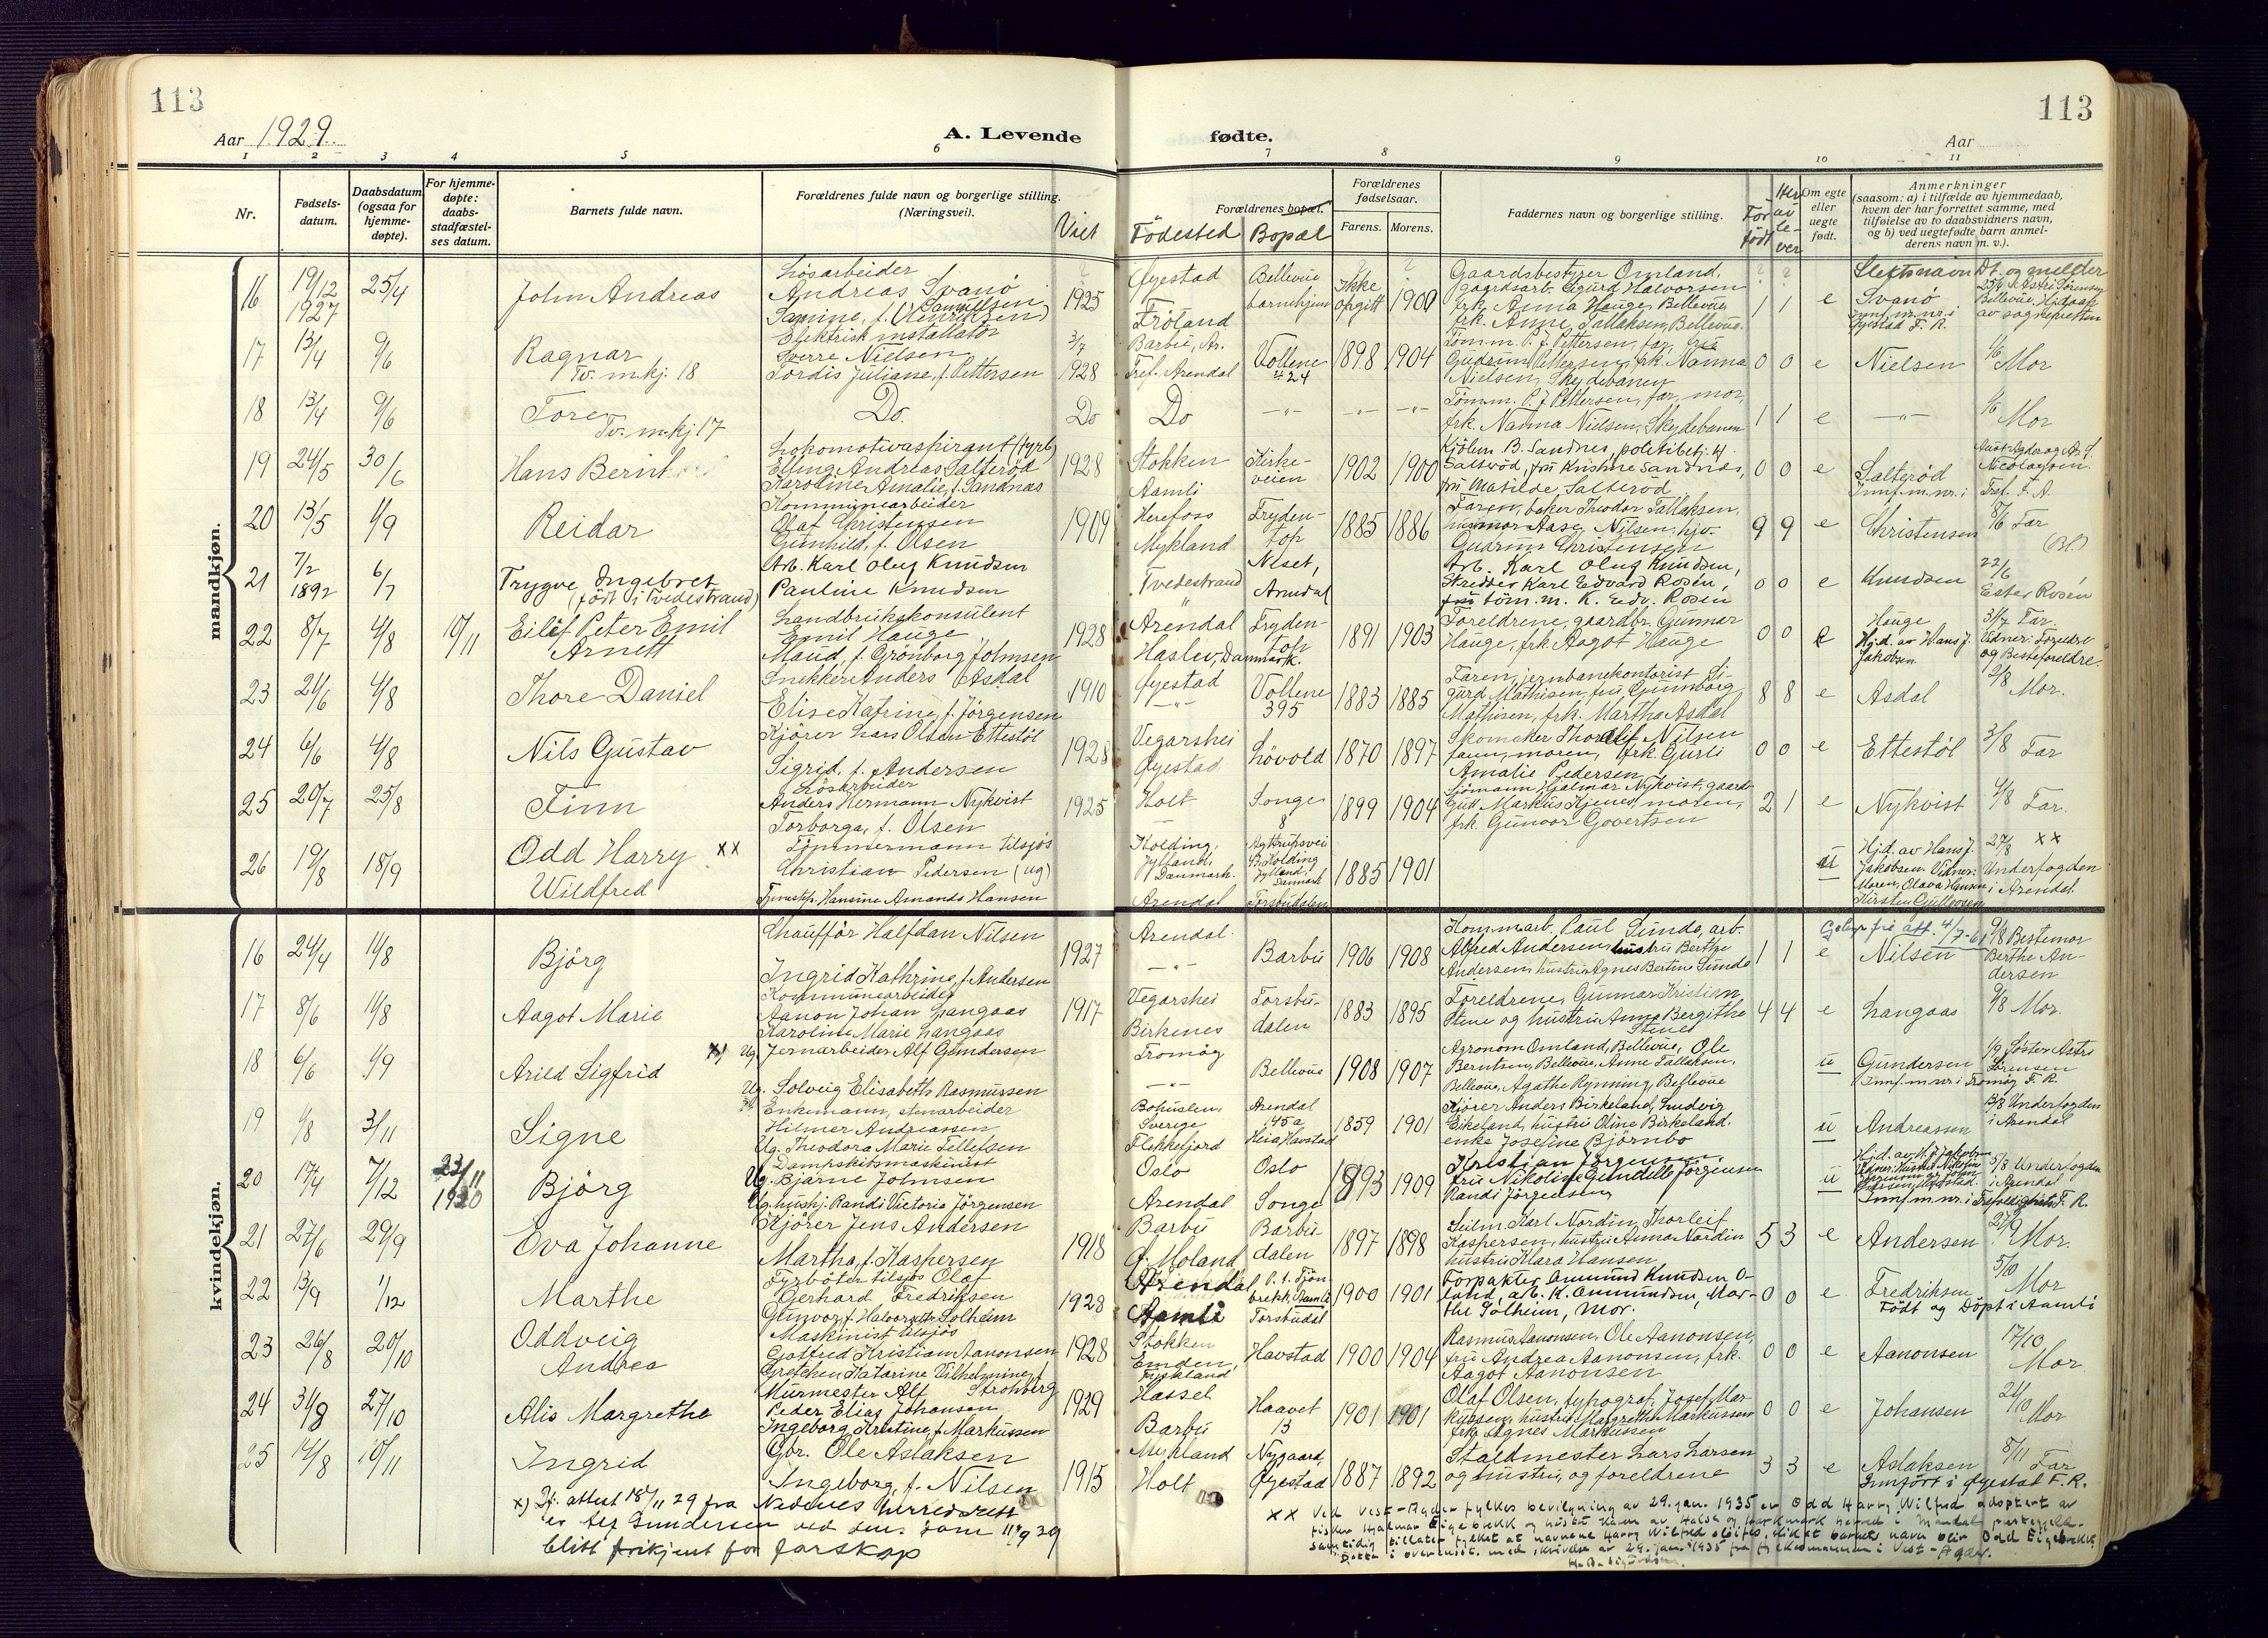 113
113
Aar 1929.
A. Levende
fødte.
Aar
1 2 3 4 5 6 7 8 9 10 11
Nr.
Fødsels-
datum.
Daabsdatum
(ogsaa for
hjemme-
døpte).
For hjemme-
døpte:
daabs-
stadfæstel-
ses datum.
Barnets fulde navn.
Forældrenes fulde navn og borgerlige stilling.
(Næringsvei).
Viet
Forældrenes bopæl.
Födested Bopæl
Forældrenes
fødselsaar.
Farens. Morens.
Faddernes navn og borgerlige stilling.
Før
født
Her
av
le-
ver
Om egte
eller
uegte
født.
Anmerkninger
(saasom: a) i tilfælde av hjemmedaab,
hvem der har forrettet samme, med
tilføielse av to daabsvidners navn,
og b) ved uegtefødte barn anmel-
derens navn m. v.).
mandkjøn.
16 19/12 1927 25/4 John Andreas
Løsarbeider
Andreas Svanö
1925
Øyestad
Fröland
Bellevue
barnehjem
Ikke
opgitt
1900
Gaardsbestyrer Omland,
gaardsarb. Sigurd Halvorsen
frk. Anna Hauge, Bellevue,
frk. Anne Tallaksen, Bellevue.
1 1 e
Slektsnavn
Svanö
Innf. m. nr. i
Øyestad F. R.
Dt. og melder
17 13/4 9/6 Ragnar
Tv. m. kj. 18
Elektrisk installatør
Sverre Nielsen
Tordis Juliane, f. Pettersen
3/7
1928
Barbu, Ar.
Tref. Arendal
Vollene
424
1898 1904
Tömm. P. J. Pettersen, far, fru
Gudrun Pettersen, frk. Nanna
Nielsen, Skydebanen
0 0 e Nielsen
1/6 Mor
18 13/4 9/6 Tore
Tv. m. kj 17
Do.
Do
Do
-"- -"- -"-
Tömm. P. J. Pettersen, far, mor,
frk. Nanna Nielsen, Skydebanen
1 1 e -"-
1/6 Mor
19 24/5 30/6 Hans Bernt
Lokomotivaspirant (fyrb)
Elling Andreas Salteröd
Karoline Amalie, f. Sandnæs
1928
Stokken
Aamli
Kirke-
veien
1902 1900
Saltröd, fru Kristine Sandnæs,
fru Matilde Salteröd
0 0 e
Salteröd
Innf. m. nr. i
Tref. F. A.
20 13/5 1/9 Reidar
Kommunearbeider
Olaf Christensen
Gunhild, f. Olsen
1909
Herefoss
Mykland
Fryden-
top
1885 1886
Faren, baker Theodor Tallaksen,
Aase Nilsen, hjv.
Gudrun Christensen
9 9 e Christensen
8/6 Far
(Bl.)
21 7/2 1892 6/7 Trygve Ingebret
(født i Tvedestrand)
Arb. Karl Oluf Knudsen
Pauline Knudsen
Tvedestrand
"
Neset,
Arendal
Arb. Karl Oluf Knudsen,
Skredder Karl Edvard Rosén,
töm. m. K. Edv. Rosén
0 0 e Knudsen
22/6
Ester Rosén
22 8/7 4/8 10/11 Eilif Peter Emil
Arnett
Landbrukskonsulent
Emil Hauge
Maud, f. Grönborg Johnsen
1928
Arendal
Haslev, Danmark.
Fryden-
top
1891 1903
Foreldrene, gaardbr. Gunnar
Hauge, frk. Aagot Hauge
0 0 e
Hauge
Hj.d. av Hans J.
Jakobsen
31/7 Far.
Vidner: Foreldre
og Besteforeldre
23 21/6 4/8 Thore Daniel
Snekker Anders Asdal
Elise Katrine, f. Jörgensen
1910
Øyestad
-"-
Vollene
395
1883 1885
Faren, jernbanekontorist Si-
gurd Mathisen, fru Gunnborg
Mathisen, frk. Martha Asdal
8 8 e Asdal
2/8
Mor.
24 6/6 4/8 Nils Gustav
Kjörer Lars Olsen Ettestöl
Sigrid, f. Andersen
1928
Vegarshei
Øyestad
Lövold
1870 1897
Skomaker Thoralf Nilsen
faren, moren, frk. Gurli
Amalie Pedersen
0 0 e Ettestöl
3/8 Far
25 20/7 25/8 Finn
Løsarbeider
Anders Hermann Nykvist
Torborga, f. Olsen
1925
Holt
—
Songe
8
1899 1904
Sjömann Hjalmar Nykvist, gaard-
Markus moren,
frk. Gunvor Govertsen
2 1 e Nykvist
4/8 Far.
26 19/8 18/9 Odd Harry xx
Wildfred
Tömmermann tilsjös
Christian Pedersen (ug)
Tjenestep. Hansine Amanda Hansen
Kolding,
Jylland,
Danmark.
Arendal
Agtrupsvei
Kolding
Jylland,
Danmark
Torsbudalen
1885 1901
u
Hj.d. av Hans J.
Jakobsen. Vidner:
Moren, Olava Hansen
Kirsten Gulleosen
27/8 xx
Underfogden
i Arendal
kvindekjøn.
16 24/4 11/8 Bjørg
Chauffør Halfdan Nilsen
Ingrid Kathrine, f. Andersen
1927
Arendal.
-"-
Barbu
1906 1908
Komm.arb. Paul Sunde, arb.
Alfred Andersen, hustru Berthe
Andersen, hustru Agnes Bertine Sunde
1 1 e Nilsen
4/7-61
9/8 Bestemor
Berthe An-
dersen
17 8/6 11/8 Aagot Marie
Kommunearbeider
Aanon Johan Langaas
Karoline Marie Langaas
1917
Vegarshei
Birkenes
Torsbu-
dalen
1883 1895
Foreldrene, Gunnar Kristian
Stene og hustru Anna Bergithe
Stenes
4 4 e Langaas
9/8 Mor.
18 6/6 1/9 Arild Sigfrid x)
Ug. Jernarbeider Alf Gundersen
Ug. Solveig Elisabeth Rasmussen
Tromøy
-"-
Bellevue
1908 1907
Agronom Omland, Bellevue, Ole
Berntsen, Bellevue, Anne Tallaksen,
Bellevue, Agathe Rynning, Bellevue
u Gundersen
Innf. m. nr. i Tromøy F. R.
1/9 Søster Astri
Sørensen
19 1/8 3/11 Signe
Enkemann, stenarbeider
Hilmer Andreassen
Ug. Theodora Marie Tellefsen
Bohuslen,
Sverige
Flekkefjord
Arendal
45a
Heia Havstad
1859 1901
Kjörer Anders Birkeland, Ludvig
Eikeland, hustru Oline Birkeland.
enke Josefine Björnbo
u Andreassen
13/8 Underfogden
i Arendal
20 17/4 7/12 23/11 1930 Bjørg
Dampskibsmaskinist
Ug. Bjarne Johnsen
Ug. hushj. Randi Victoria Jörgensen
Oslo
Arendal
Oslo
Songe
1893 1909
Kristian Jörgensen,
fru Nikoline Gundelle Jörgensen
Randi Jörgensen
u
Hj.d. av H. J. Jakobsen
Innf. m. nr. i Trefoldighets F. R.
5/8 Underfogden
i Arendal
21 27/6 29/9 Eva Johanne
Kjörer Jens Andersen
Martha, f. Kaspersen
1918
Barbu
Ø. Moland
Barbu-
dalen
1897 1898
Seilm. Karl Nordin, Thorleif
Kaspersen, hustru Anna Nordin
hustru Klara Hansen
5 3 e Andersen
27/9 Mor.
22 13/9 1/12 Marthe
Fyrböter tilsjös Olaf
Gerhard Fredriksen
Gunvor, f. Halvorsdtr Solheim
1928
Arendal
Aamli
P. t. Tjön-
brekk, Aamli
Torsbudal
1900 1901
Forpakter Ommund Knudsen O-
land, arb. K. Ommundsen, Mar-
the Solheim, Mor.
0 0 e Fredriksen
5/10
Mor
Født og Döpt i Aamli
23 26/8 20/10 Oddveig
Andrea
Maskinist tilsjös
Gotfred Kristian Aanonsen
Gretchen Katarine Vilhelmine, f.
Strohberg
1928
Stokken
Emden,
Tyskland
Havstad
1900 1904
Rasmus Aanonsen, Ole Aanonsen,
fru Andrea Aanonsen, frk.
Aagot Aanonsen
0 0 e Aanonsen
17/10
Mor
24 31/8 27/10 Alis Margrethe
Murmester Alf
Peder Elias Johansen
Ingeborg Kristine, f. Markussen
1929
Hassel
Barbu
Haavet
13
1901 1901
Olaf Olsen, typograf, Josef Mar-
kussen, hustru Margrethe Markussen
frk. Agnes Markussen
0 0 e Johansen
24/10
Mor
25 14/8 10/11 Ingrid
Gbr. Ole Aslaksen
Ingeborg, f. Nilsen
1915
Mykland
Holt
Nygaard,
Øyestad
1887 1892
Staldmester Lars Larsen
og hustru, og foreldrene
3 3 e Aslaksen
8/11
Far
Innfört i Øyestad F. R.
x) Iflg. attest 18/11 29 fra Nedenes herredsrett
er Alf Gundersen ved dom 11/9 29
blitt frikjent for farskap
xx Ved Vest-Agder fylkes bevilgning av 29. jan. 1935 er Odd Harry Wilfred adoptert av
fisker Hjalmar Eigebrekk og hustru av Halse og Harkmark herred i Mandal prestegjeld.
Samtidig tillater fylket at navnene Harry Wilfred sløifes, slik at barnets navn blir Odd Eigebrekk
Dette i overensst. med skrivelse av 29. jan. 1935 fra fylkesmannen i Vest-Agder.